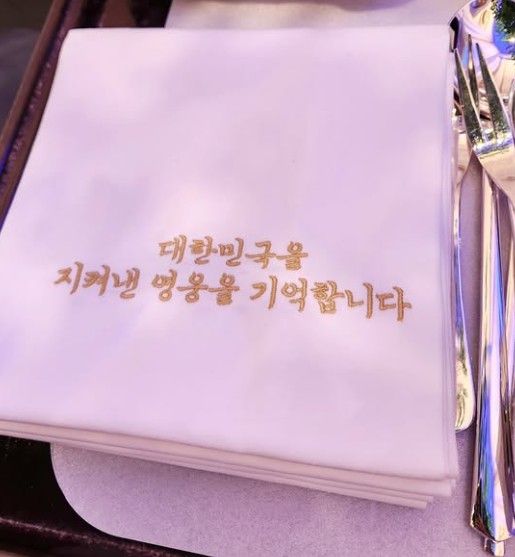 대한민국을
지켜낸 영웅을 기억합니다